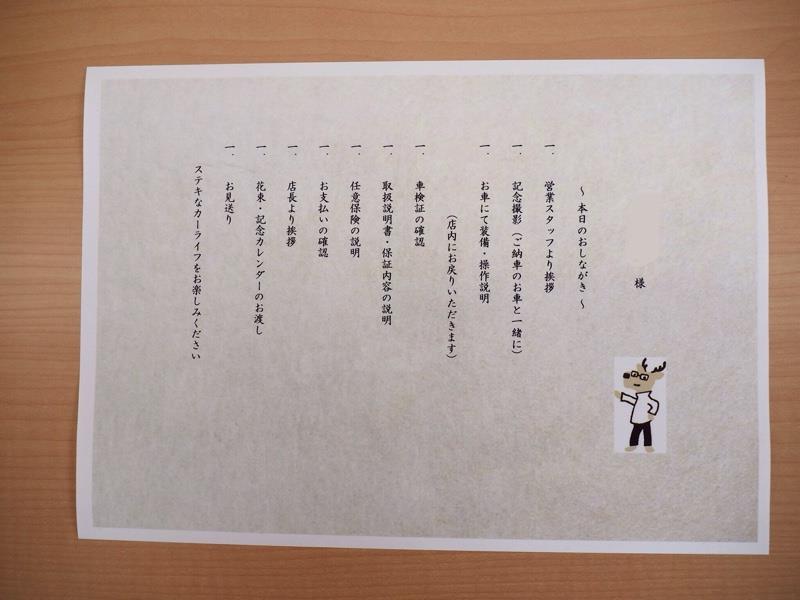 様
～ 本日のおしながき ～
一． 営業スタッフより挨拶
一． 記念撮影（ご納車のお車と一緒に）
一． お車にて装備・操作説明
（店内にお戻りいただきます）
一． 車検証の確認
一． 取扱説明書・保証内容の説明
一． 任意保険の説明
一． お支払いの確認
一． 店長より挨拶
一． 花束・記念カレンダーのお渡し
一． お見送り
ステキなカーライフをお楽しみください